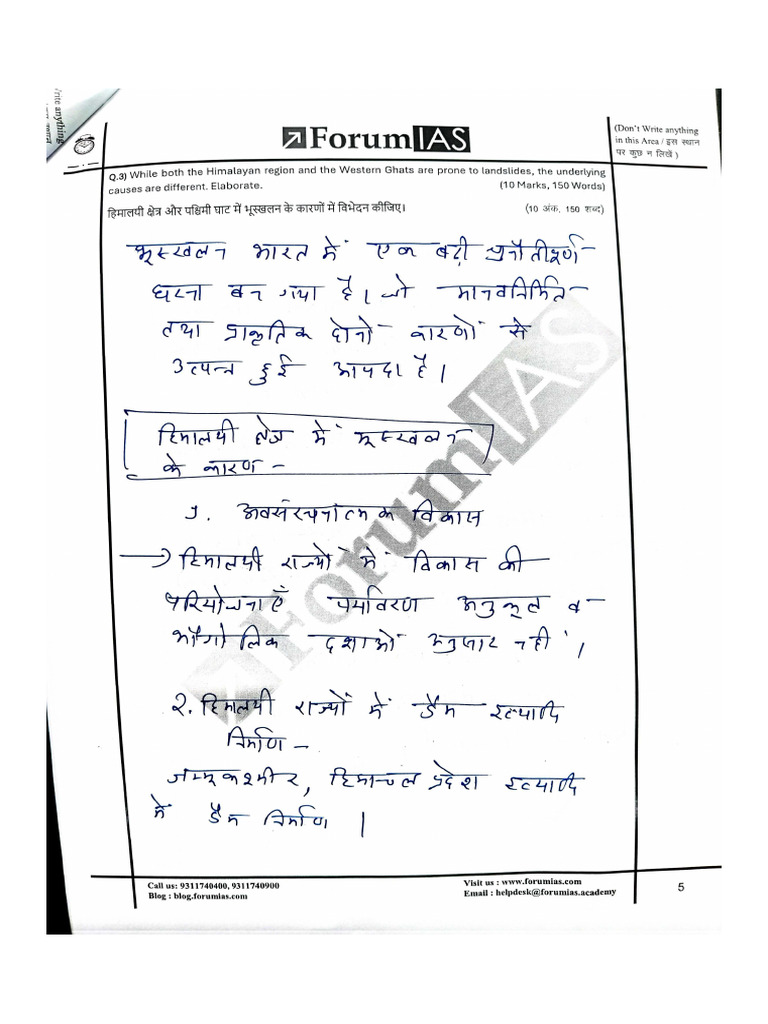 ForumIAS
(Don't Write anything
in this Area / इस स्थान
पर कुछ न लिखें )
Q.3) While both the Himalayan region and the Western Ghats are prone to landslides, the underlying
causes are different. Elaborate. (10 Marks, 150 Words)
हिमालयी क्षेत्र और पश्चिमी घाट में भूस्खलन के कारणों में विभेदन कीजिए। (10 अंक, 150 शब्द)
भूस्खलन भारत में एक बड़ी चुनौतीपूर्ण
घटना बन गया है। जो मानवनिर्मित
तथा प्राकृतिक दोनो कारणों से
उत्पन्न हुई आपदा है।
हिमालयी क्षेत्र में भूस्खलन
के कारण -
1. अवसंरचनात्मक विकास
→ हिमालयी राज्यों में विकास की
परियोजनाएँ पर्यावरण अनुकूल व
भौगोलिक दशाओं अनुसार नहीं।
2. हिमालयी राज्यों में डैम इत्यादि
निर्माण -
जम्मूकश्मीर, हिमाचल प्रदेश इत्यादि
में डैम निर्माण।
ForumIAS
Call us: 9311740400, 9311740900
Blog : blog.forumias.com
Visit us : www.forumias.com
Email : helpdesk@forumias.academy
5